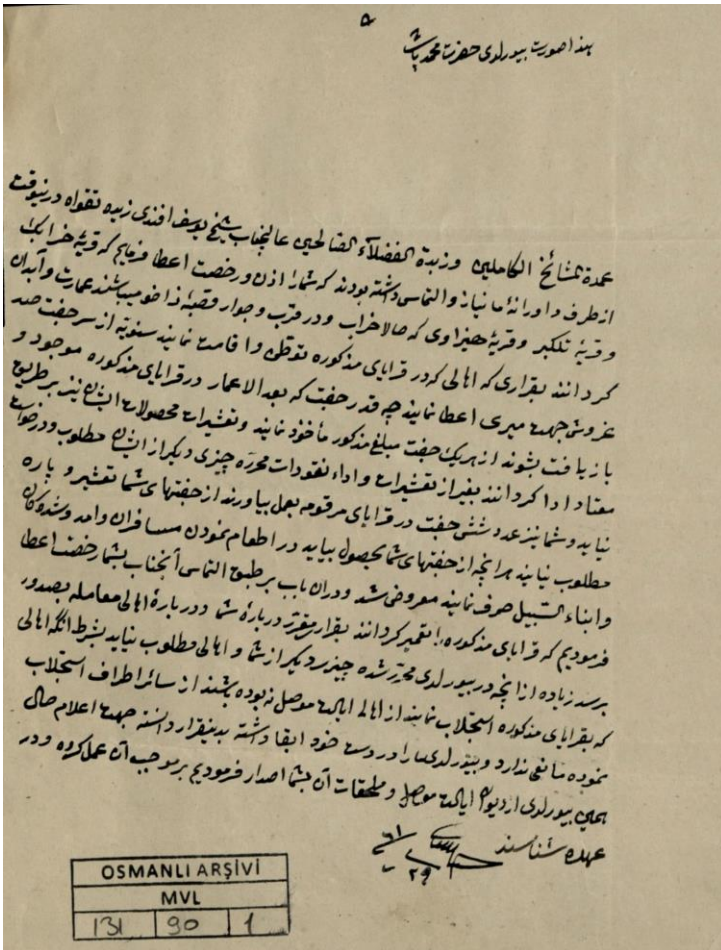 هذا صورت بیورلدی حضرت محمد پاشا
عمدة المشائخ الکاملین وزبدة الفضلاء الصالحین عالیجناب شیخ یوسف افندی زیده تقواه درینوقت
از طرف داورانهٔ ما نیاز والتماس داشته بودند که شما را اذن ورخصت اعطا فرمایم که قریهٔ خرابهٔ
وقریهٔ تلکبر وقریهٔ حیزاوی که حالا خراب ودر قرب وجوار قصبهٔ میباشند عمارت وآبدان
کردانند بقراری که اهالی که در قرایای مذکوره توطن واقامت نمایند سنویه از سر جفت صد
غروش جهت میری اعطا نمایند چه قدر جفت که بعد الاعمار در قرایای مذکوره موجود و
باز یافت بشوند از هریک جفت مبلغ مذکور مأخوذ نمایند وتعشیرات محصولات ایشان نیز بر طریق
معتاد ادا کردانند بغیر از تعشیرات واداء نقودات محرره چیزی دیکر از ایشان مطلوب ودرخواست
نیاید وشما نیز عدد شش جفت در قرایای مرقومه بعمل بیاورند از جفتهای شما تعشیر وپاره
مطلوب نیایند هرانچه از جفتهای شما بحصول بیاید در اطعام نمودن مسافران وآمد وشدوکان
وابناء السبیل صرف نمایند معروض شد ودران باب بر طبق التماس آنجناب بشما رخصت اعطا
فرمودیم که قرایای مذکوره را تعمیر کردانند بقرار مقرر دربارهٔ شما ودربارهٔ اهالی معامله بصدور
برسد زیاده از انچه در بیورلدی محرر شده چیز دیکر از شما واهالی مطلوب نیاید بشرط آنکه اهالی
که بقرایای مذکوره استجلاب نمایند از اهالی ایالت موصل نبوده باشند از سائر اطراف استجلاب
نموده مانعی ندارد وبیورلدی ما را در دست خود ابقا داشته بدینقرار دانسته جهت اعلام حال
همین بیورلدی از دیوان ایالت موصل وملحقات آن بشما اصدار فرمودیم بر موجب آن عمل کرده ودر
عهده شناسند
٢٩ ٦١
OSMANLI ARŞİVİ
MVL
131 90 1